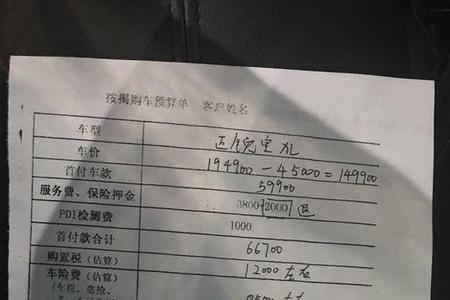 按揭购车预算单 客户姓名
车型
车价 194900 - 45000 = 149900
首付车款 59900
服务费、保险押金 3800 2000 退
PDI检测费 1000
首付款合计 66700
购置税(估算) 12000 左右
车险费(估算)